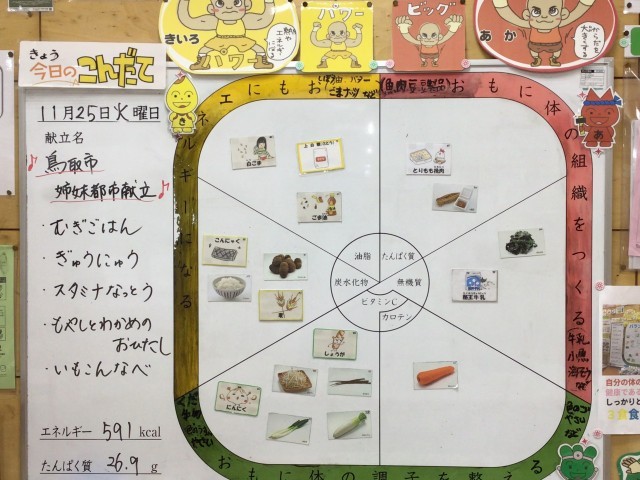 きいろ
パワー
熱や
エネルギー
になる
パワー
ビッグ
あか
からだを
大きくする
きょう
今日のこんだて
11月25日火曜日
献立名
♪鳥取市
姉妹都市献立♪
・むぎごはん
・ぎゅうにゅう
・スタミナなっとう
・もやしとわかめの
おひたし
・いもこんなべ
エネルギー 591 kcal
たんぱく質 26.9 g
エネルギーになる
おもに体の組織をつくる
おもに体の調子を整える
白ごま
ごま油
とりもも挽肉
こんにゃく
麦
しょうが
にんにく
油脂
たんぱく質
炭水化物
無機質
ビタミンC
カロテン
牛乳
小魚
海そう
など
あ
自分の体の
健康である
しっかりと
3食食